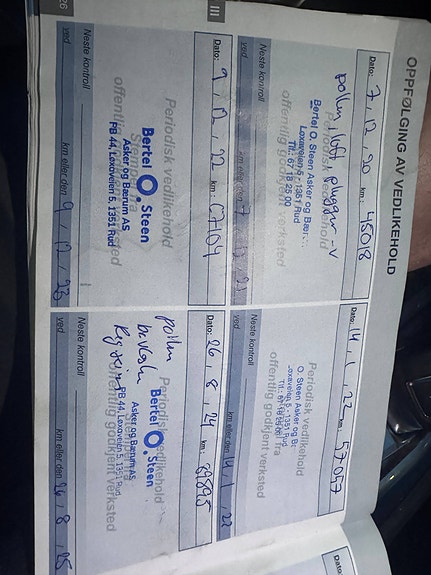 OPPFØLGING AV VEDLIKEHOLD
Dato: 7, 12, 20 km: 45018
pollen luft plugger
Periodisk vedlikehold
Bertel O. Steen Asker og Bær
Loxaveien 5, 1351 Rud
Tlf.: 67 18 25 00
offentlig godkjent verksted
Neste kontroll
ved km eller den 7
Dato: 14, 1, 22 km: 57057
Periodisk vedlikehold
O. Steen Asker og
Loxaveien 5, 1351 Rud
Tlf.: 67 18 25 00
fra
offentlig godkjent verksted
Neste kontroll
ved km eller den 14, 1, 22
III
Dato: 9, 12, 22 km:
Periodisk vedlikehold
Stempel fra
Bertel O. Steen
Asker og Bærum AS
PB 44, Loxaveien 5, 1351 Rud
offentlig godkjent verksted
Neste kontroll
ved km eller den 9, 12, 23
Dato: 26, 8, 24 km: 89895
pollen
Periodisk vedlikehold
Bertel O. Steen
Asker og Bærum AS
PB 44, Loxaveien 5, 1351 Rud
offentlig godkjent verksted
Neste kontroll
ved km eller den 26, 8, 25
26
Dato: